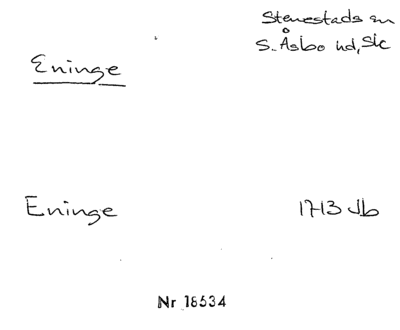 Stenestads sn
S. Åsbo hd, Sk
Eninge
Eninge 1713 Jb
Nr 18534